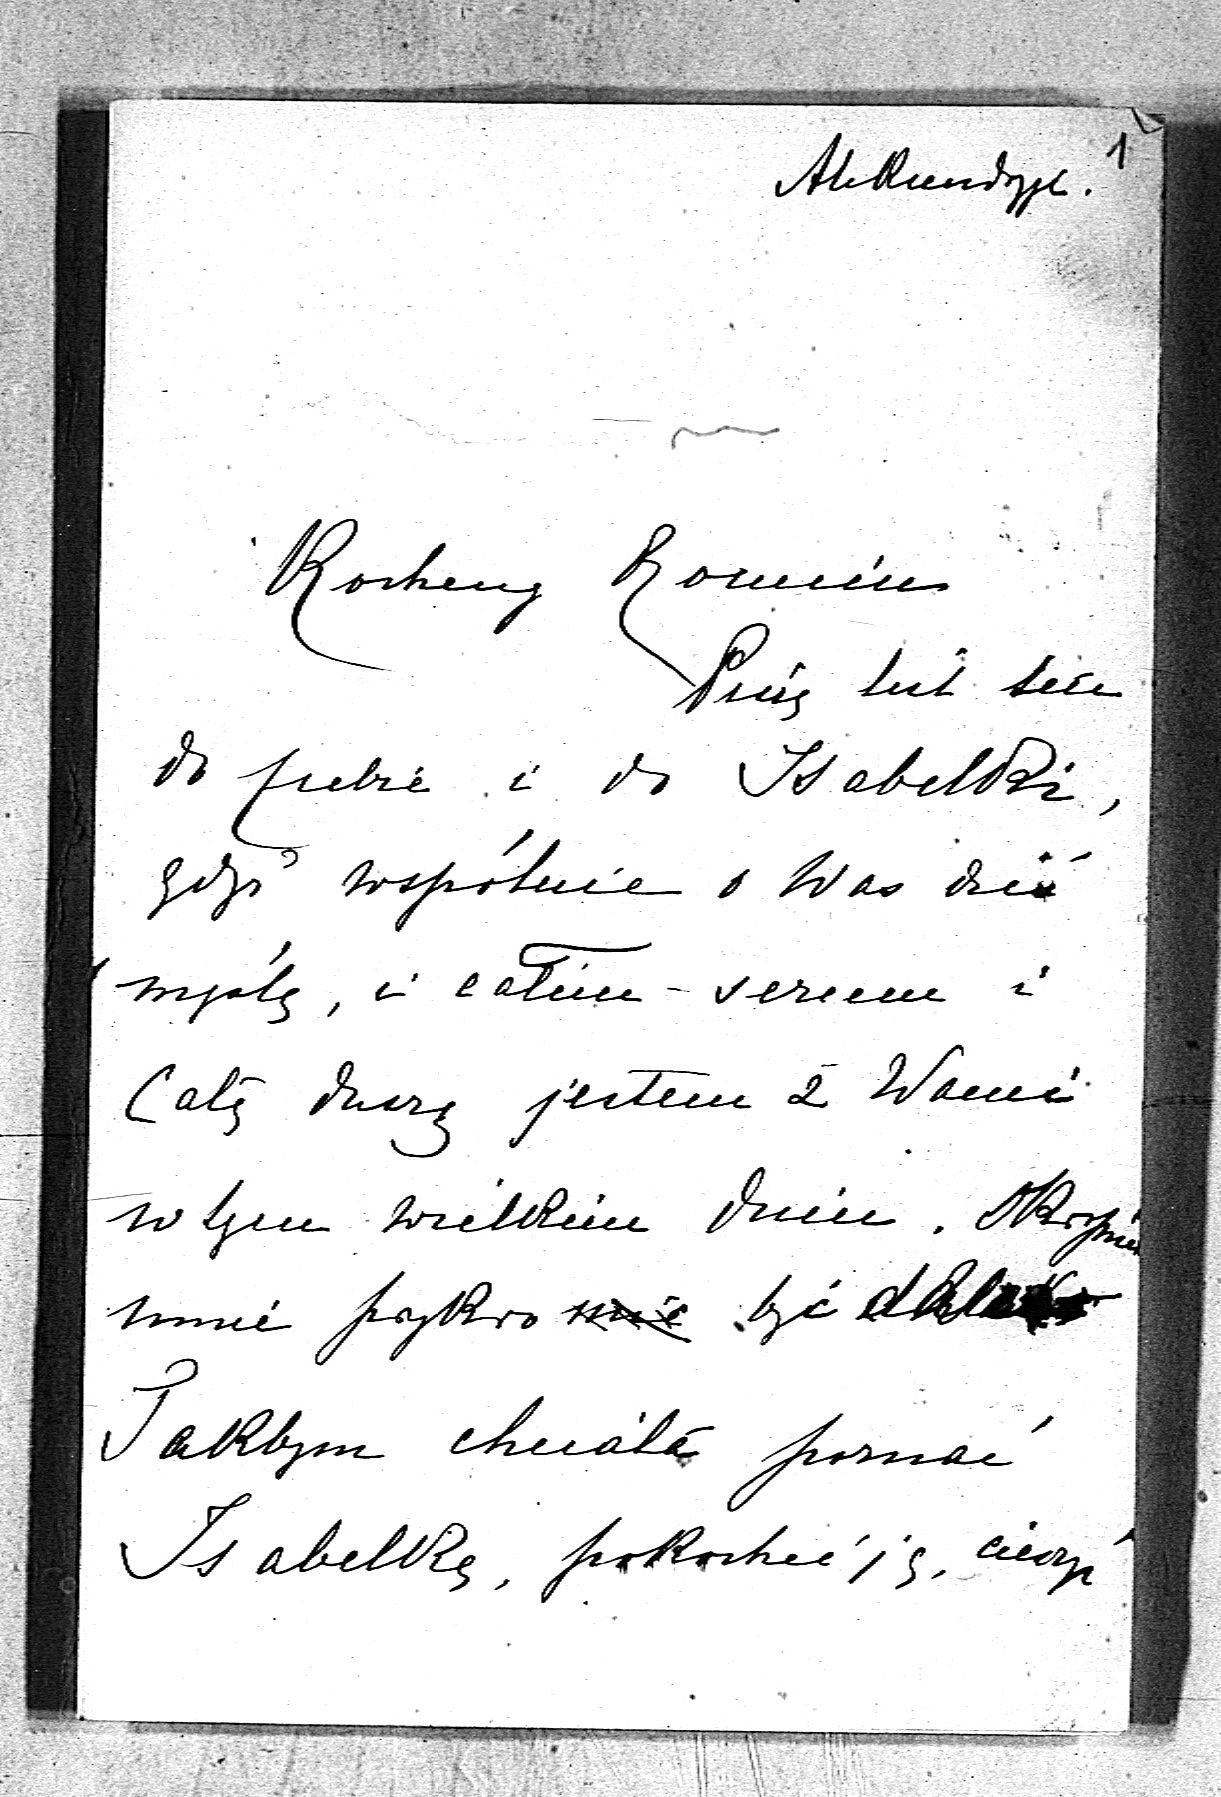 1
Aleksandryi.
Kochany Romciu
Piszę list ten
do Ciebie i do Isabelki,
gdyż wspólnie o Was dziś
myślę, i całem sercem i
Całą duszą jestem z Wami
w tym wielkim dniu. Okropnie
mnie przykro mnie być daleko
Takbym chciała poznać
Isabelkę, pokochać ją, cieszyć